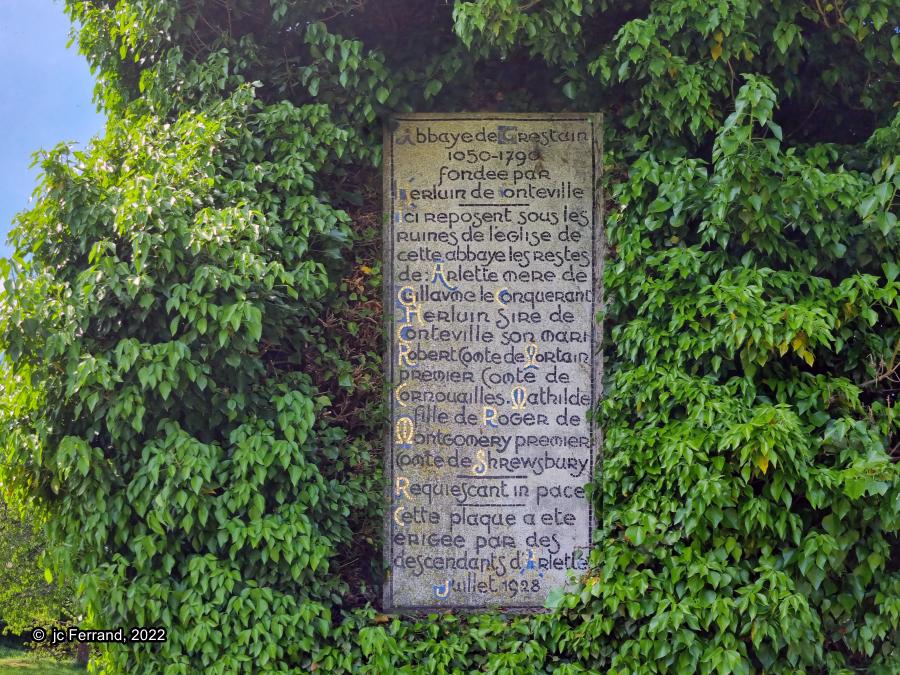 Abbaye de Grestain
1050-1790
fondee par
Herluin de Conteville
Ici reposent sous les
ruines de l'eglise de
cette abbaye les restes
de Arlette mere de
Gillavme le Conquerant
Herluin Sire de
Conteville son mari
Robert Comte de Mortain
premier Comte de
Cornouailles. Mathilde
fille de Roger de
Montgomery premier
Comte de Shrewsbury
Requiescant in pace
Cette plaque a ete
erigee par des
descendants d'Arlette
Juillet 1928
© jc Ferrand, 2022